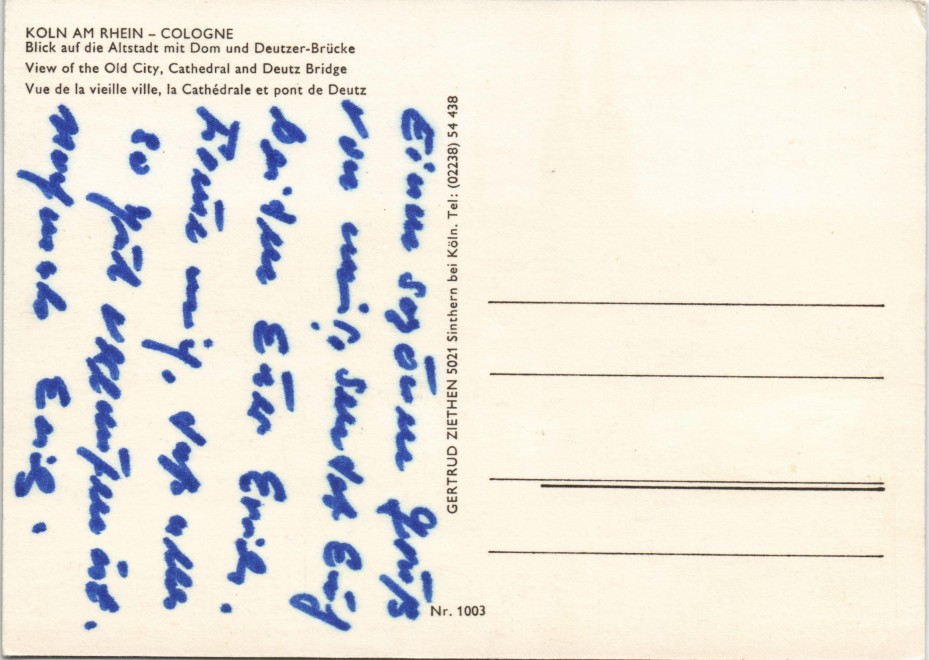 KÖLN AM RHEIN – COLOGNE
Blick auf die Altstadt mit Dom und Deutzer-Brücke
View of the Old City, Cathedral and Deutz Bridge
Vue de la vieille ville, la Cathédrale et pont de Deutz
Einen schönen Gruß
von mir, sendet Euch
Beiden Euer Erich.
Freue mich, daß alles
so gut verlaufen ist.
Erich.
GERTRUD ZIETHEN 5021 Sinthern bei Köln. Tel: (02238) 54 438
Nr. 1003